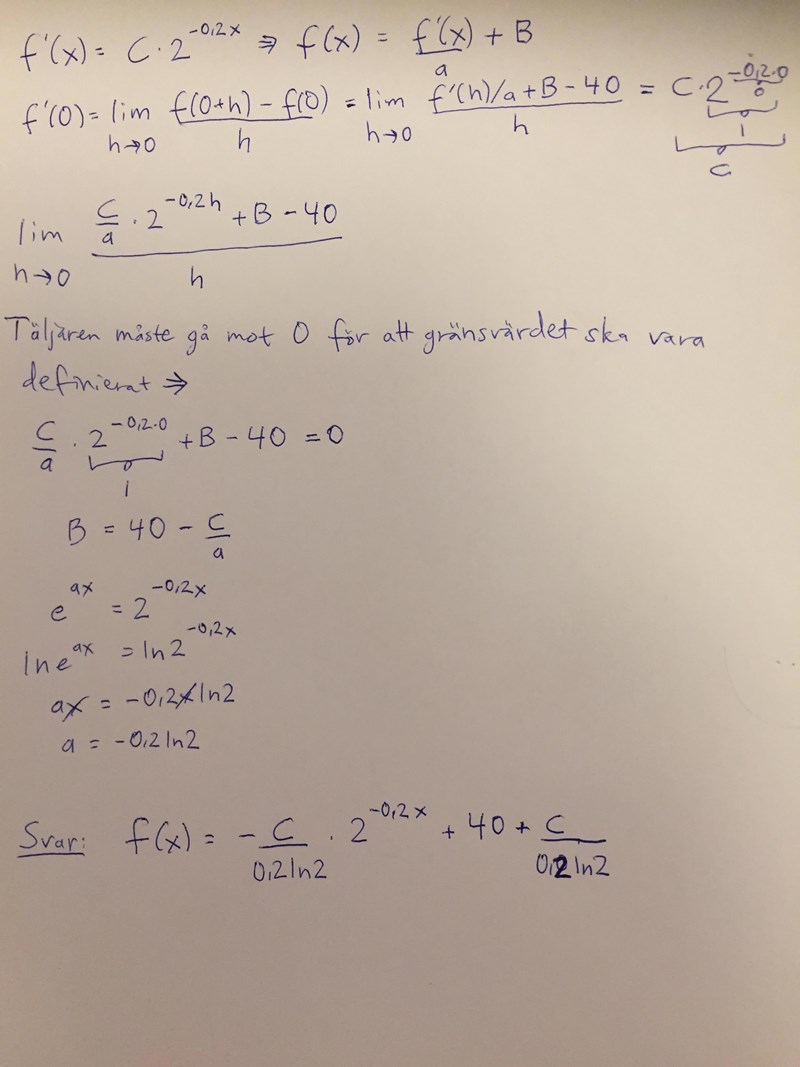 f'(x) = C · 2^(-0,2x) ⇒ f(x) = f'(x)/a + B
f'(0) = lim h→0 (f(0+h) - f(0))/h = lim h→0 (f'(h)/a + B - 40)/h = C · 2^(-0,2·0)
0
1
C
lim h→0 (C/a · 2^(-0,2h) + B - 40)/h
Täljären måste gå mot 0 för att gränsvärdet ska vara
definierat ⇒
C/a · 2^(-0,2·0) + B - 40 = 0
1
B = 40 - C/a
e^(ax) = 2^(-0,2x)
ln e^(ax) = ln 2^(-0,2x)
ax = -0,2x ln2
a = -0,2 ln2
Svar: f(x) = - C/(0,2 ln2) · 2^(-0,2x) + 40 + C/(0,2 ln2)